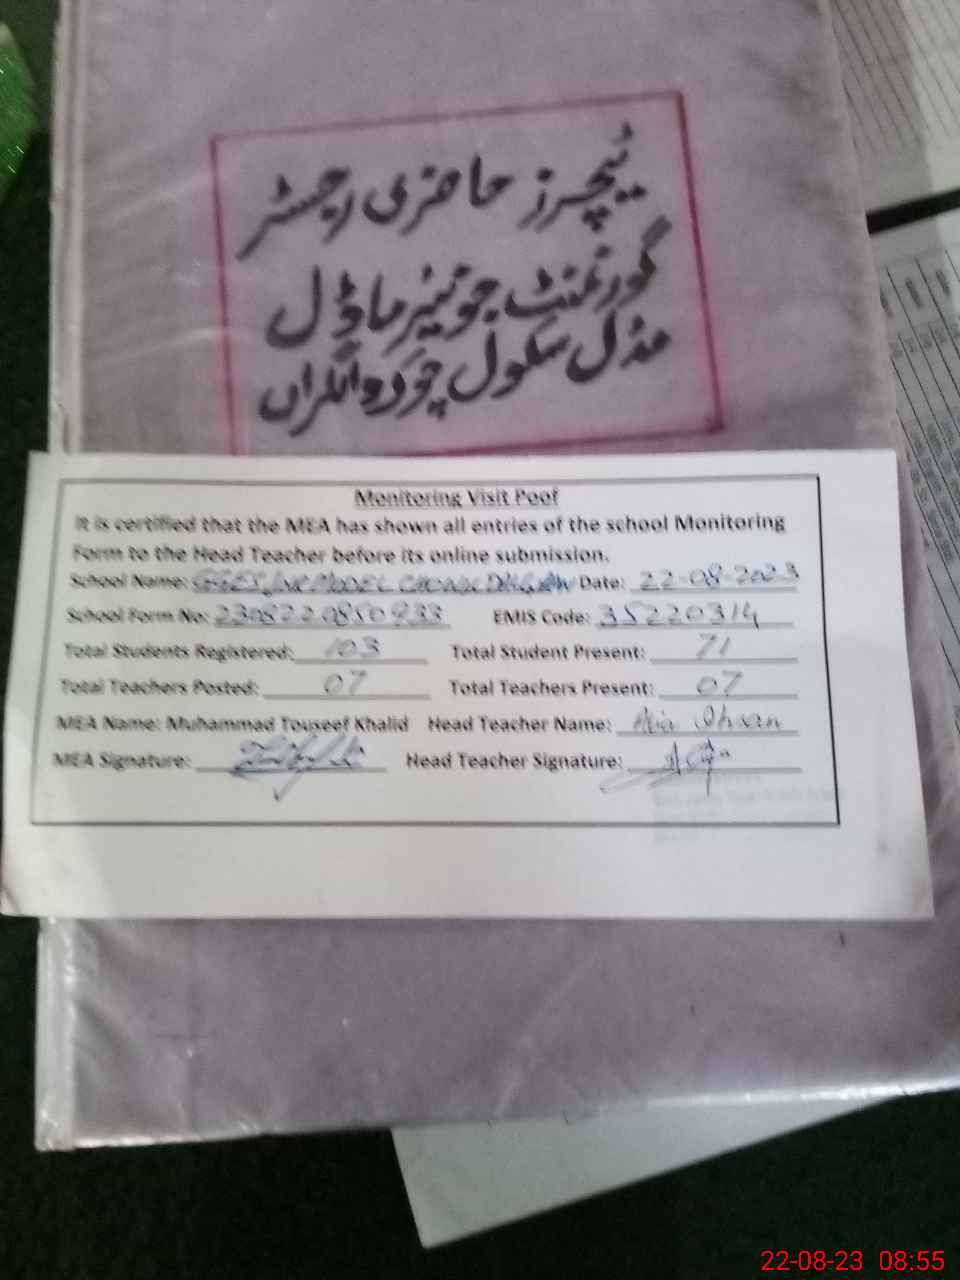 ٹیچرز حاضری رجسٹر
گورنمنٹ جونیئر ماڈل
مڈل سکول چوک دالگراں
Monitoring Visit Poof
It is certified that the MEA has shown all entries of the school Monitoring
Form to the Head Teacher before its online submission.
School Name: MODEL CHOWK DALGRAN Date: 22-08-2023
School Form No: 2308220850933 EMIS Code: 35220314
Total Students Registered: 103 Total Student Present: 71
Total Teachers Posted: 07 Total Teachers Present: 07
MEA Name: Muhammad Touseef Khalid Head Teacher Name: Alia Ahsan
MEA Signature: Head Teacher Signature:
22-08-23 08:55